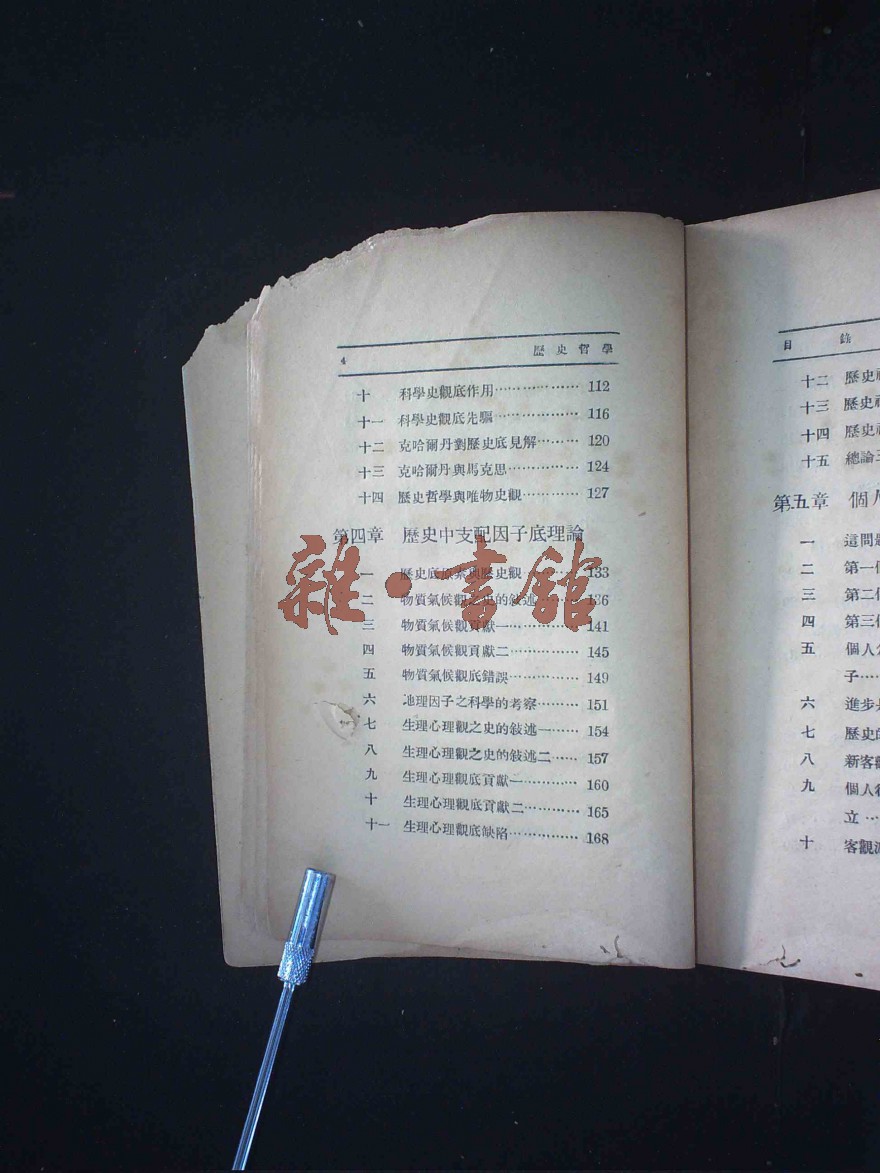 4 歷史哲學
十 科學史觀底作用……………… 112
十一 科學史觀底先驅……………… 116
十二 克哈爾丹對歷史底見解……… 120
十三 克哈爾丹與馬克思…………… 124
十四 歷史哲學與唯物史觀………… 127
第四章 歷史中支配因子底理論
一 歷史底原素與歷史觀………… 133
二 物質氣候觀之史的敍述……… 136
三 物質氣候觀貢獻一…………… 141
四 物質氣候觀貢獻二…………… 145
五 物質氣候觀底錯誤…………… 149
六 地理因子之科學的考察……… 151
七 生理心理觀之史的敍述一…… 154
八 生理心理觀之史的敍述二…… 157
九 生理心理觀底貢獻一………… 160
十 生理心理觀底貢獻二………… 165
十一 生理心理觀底缺陷…………… 168
雜·書館
目錄
十二 歷史
十三 歷史
十四 歷史
十五 總論
第五章 個人
一 這問
二 第一
三 第二
四 第三
五 個人
子……
六 進步
七 歷史
八 新客觀
九 個人
立…
十 客觀